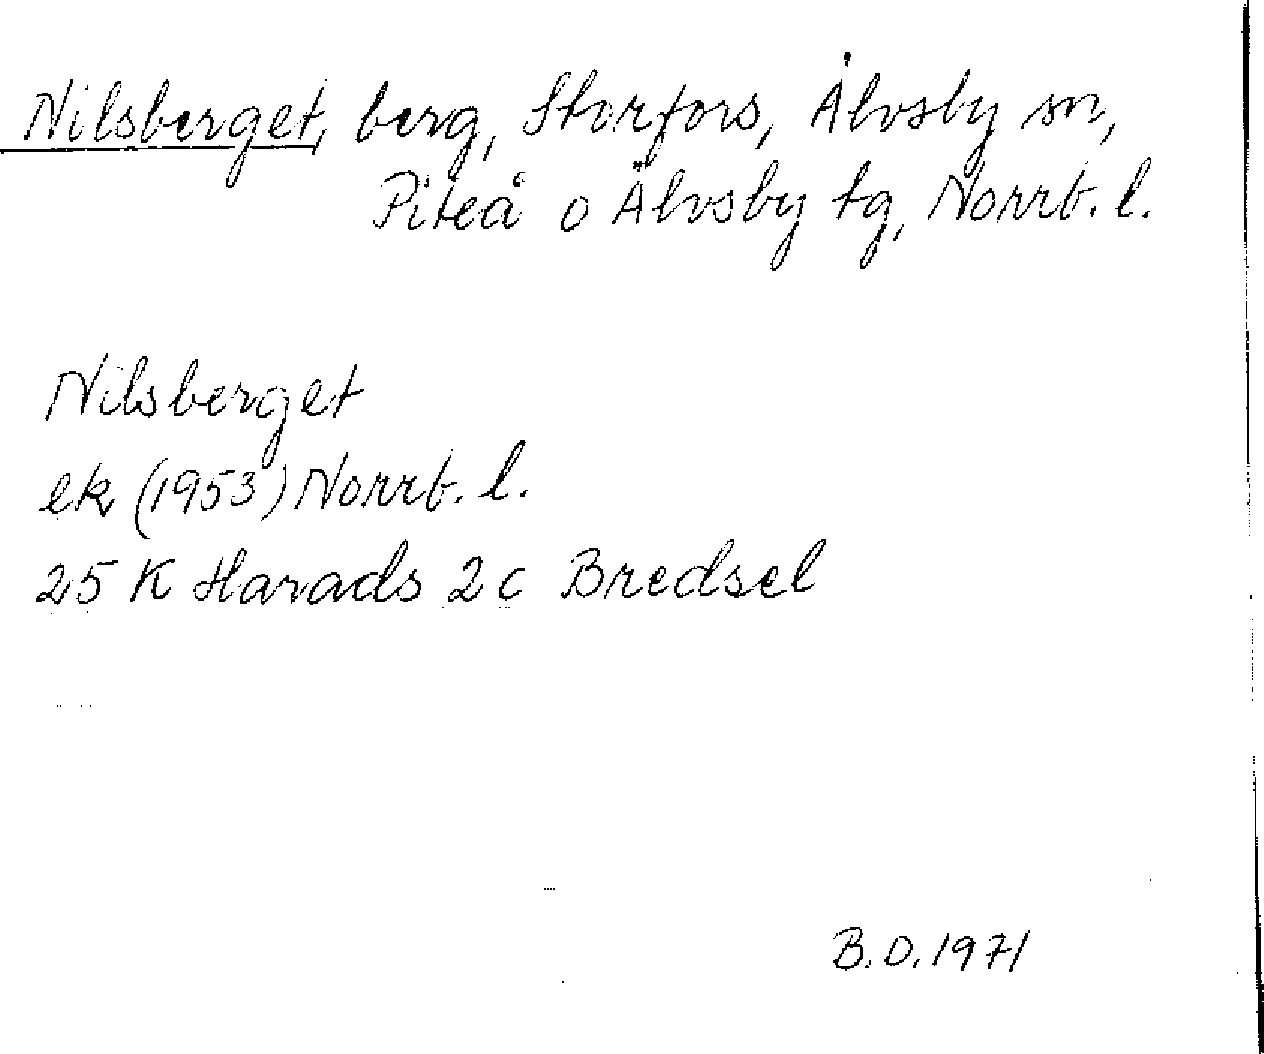 Nilsberget, berg, Storfors, Älvsby sn,
Piteå o Älvsby tg, Norrb. l.
Nilsberget
ek (1953) Norrb. l.
25 K Harads 2 c Bredsel
B.D. 1971